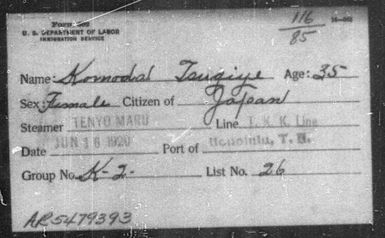 116
85
Form 509
U. S. DEPARTMENT OF LABOR
IMMIGRATION SERVICE
Name: Komodal Tsugiye Age: 35
Sex: Female Citizen of Japan
Steamer TENYO MARU Line T. K. K. Line
Date JUN 16 1920 Port of Honolulu, T. H.
Group No. K-2- List No. 26
AR5479393